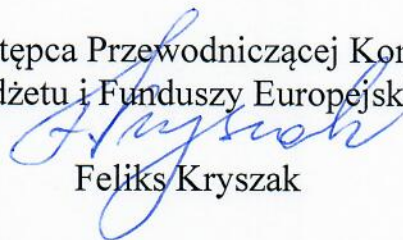 tępca Przewodniczącej Kor
dżetu i Funduszy Europejsk
Kryszak
Feliks Kryszak